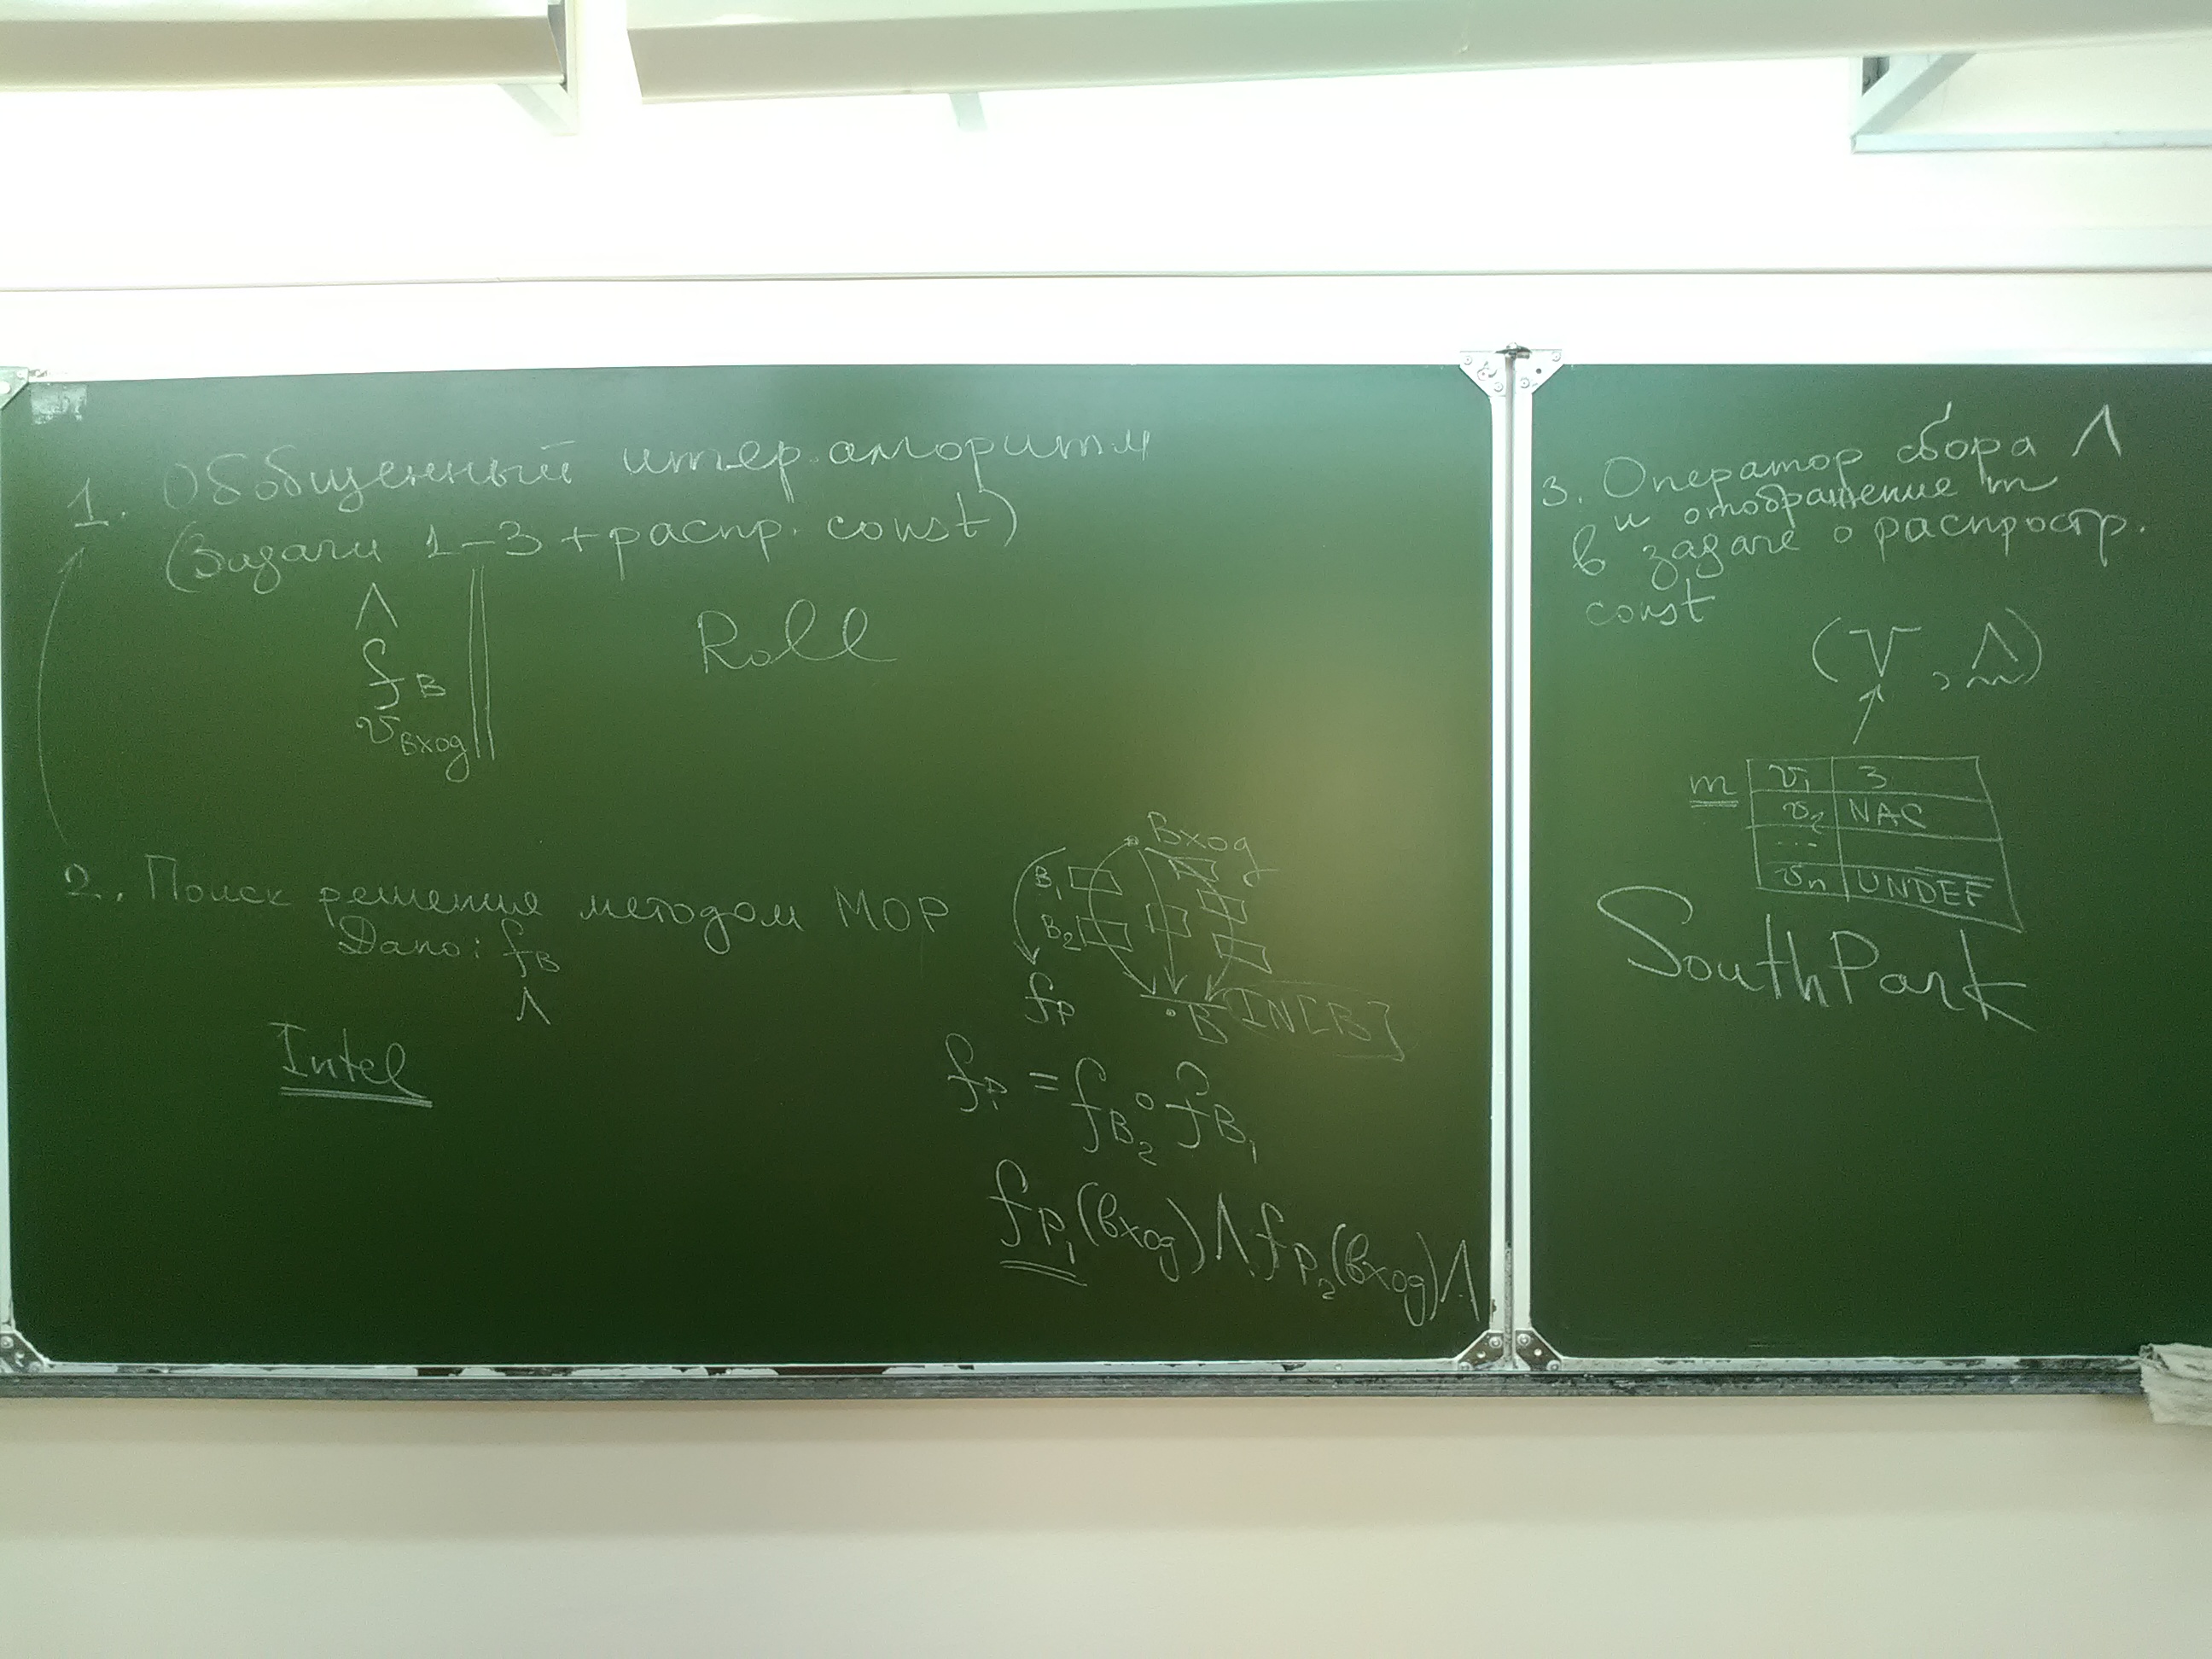 1. Обобщенный итер. алгоритм
(Задачи 1-3 + распр. const)
Λ
f_B
v_вход
Roll
2. Поиск решения методом MOP
Дано: f_B
Λ
Intel
Вход
B₁
B₂
f_P
B IN[B]
f_P = f_B₂ ∘ f_B₁
f_P₁(вход) Λ f_P₂(вход) Λ
3. Оператор сбора Λ
и отображение m
в задаче о распростр.
const
(V, Λ)
m
v₁ 3
v₂ NAC
...
vₙ UNDEF
SouthPark